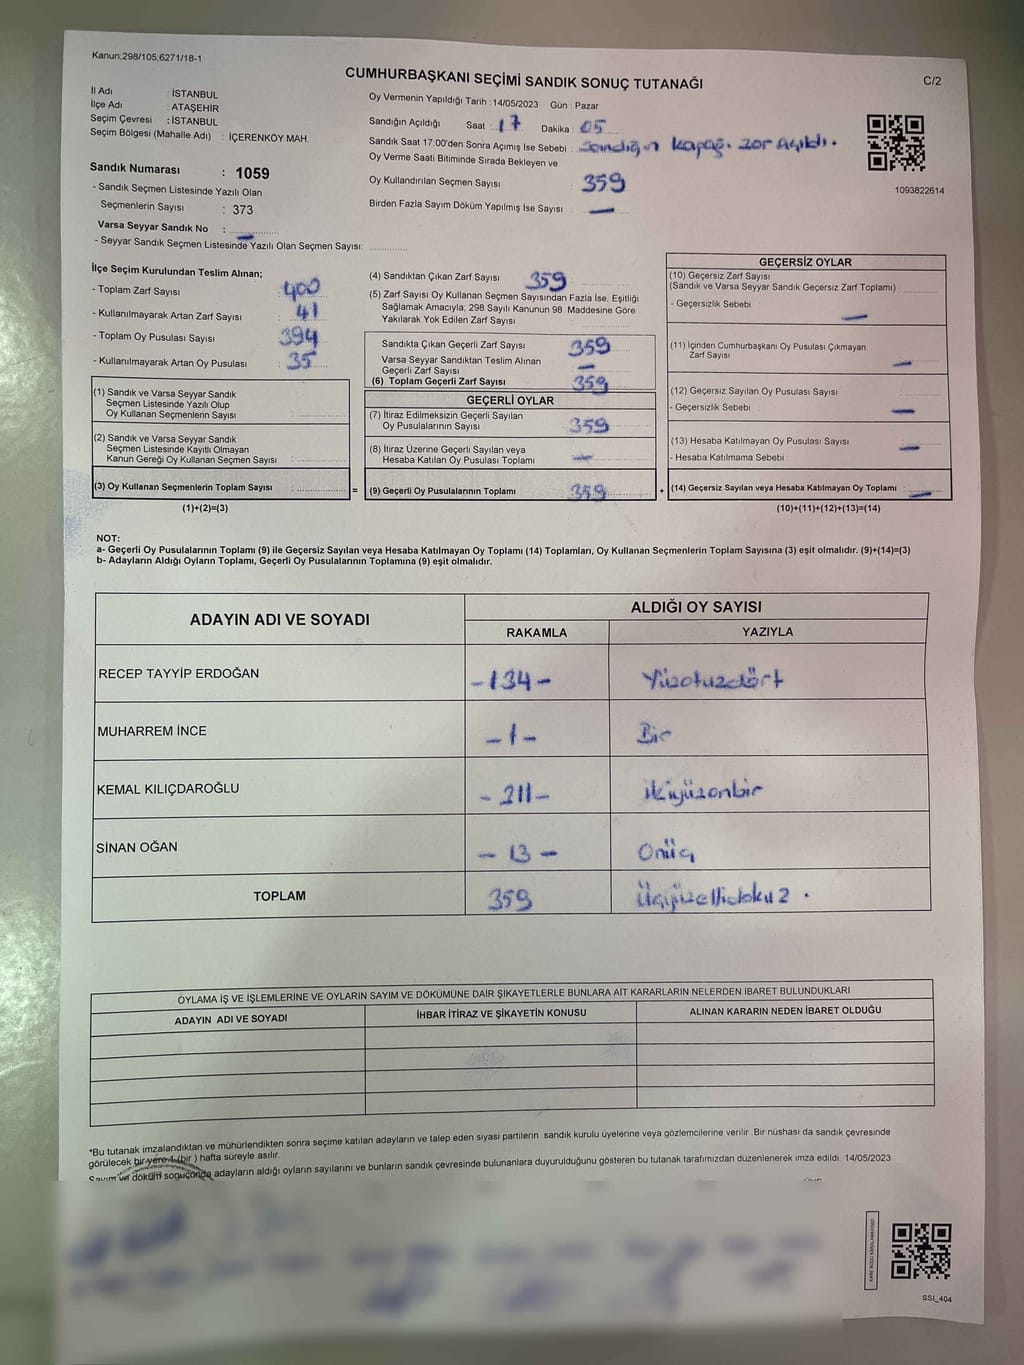 Kanun;298/105,6271/18-1
CUMHURBAŞKANI SEÇİMİ SANDIK SONUÇ TUTANAĞI
C/2
İl Adı : İSTANBUL
İlçe Adı : ATAŞEHİR
Seçim Çevresi : İSTANBUL
Seçim Bölgesi (Mahalle Adı) : İÇERENKÖY MAH.
Oy Vermenin Yapıldığı Tarih : 14/05/2023 Gün : Pazar
Sandığın Açıldığı Saat : 17 Dakika : 05
Sandık Saat 17.00'den Sonra Açımış İse Sebebi : Sandığın kapağı zor açıldı.
Oy Verme Saati Bitiminde Sırada Bekleyen ve
Oy Kullandırılan Seçmen Sayısı : 359
Birden Fazla Sayım Döküm Yapılmış İse Sayısı : —
1093822614
Sandık Numarası : 1059
- Sandık Seçmen Listesinde Yazılı Olan
Seçmenlerin Sayısı : 373
Varsa Seyyar Sandık No : —
- Seyyar Sandık Seçmen Listesinde Yazılı Olan Seçmen Sayısı:
İlçe Seçim Kurulundan Teslim Alınan;
- Toplam Zarf Sayısı : 400
- Kullanılmayarak Artan Zarf Sayısı : 41
- Toplam Oy Pusulası Sayısı : 394
- Kullanılmayarak Artan Oy Pusulası : 35
(1) Sandık ve Varsa Seyyar Sandık
Seçmen Listesinde Yazılı Olup
Oy Kullanan Seçmenlerin Sayısı :
(2) Sandık ve Varsa Seyyar Sandık
Seçmen Listesinde Kayıtlı Olmayan
Kanun Gereği Oy Kullanan Seçmen Sayısı :
(3) Oy Kullanan Seçmenlerin Toplam Sayısı :
(1)+(2)=(3)
(4) Sandıktan Çıkan Zarf Sayısı : 359
(5) Zarf Sayısı Oy Kullanan Seçmen Sayısından Fazla İse, Eşitliği
Sağlamak Amacıyla; 298 Sayılı Kanunun 98 Maddesine Göre
Yakılarak Yok Edilen Zarf Sayısı :
Sandıkta Çıkan Geçerli Zarf Sayısı : 359
Varsa Seyyar Sandıktan Teslim Alınan
Geçerli Zarf Sayısı : —
(6) Toplam Geçerli Zarf Sayısı : 359
GEÇERLİ OYLAR
(7) İtiraz Edilmeksizin Geçerli Sayılan
Oy Pusulalarının Sayısı : 359
(8) İtiraz Üzerine Geçerli Sayılan veya
Hesaba Katılan Oy Pusulası Toplamı : —
= (9) Geçerli Oy Pusulalarının Toplamı : 359
GEÇERSİZ OYLAR
(10) Geçersiz Zarf Sayısı
(Sandık ve Varsa Seyyar Sandık Geçersiz Zarf Toplamı) :
- Geçersizlik Sebebi : —
(11) İçinden Cumhurbaşkanı Oy Pusulası Çıkmayan
Zarf Sayısı : —
(12) Geçersiz Sayılan Oy Pusulası Sayısı :
- Geçersizlik Sebebi : —
(13) Hesaba Katılmayan Oy Pusulası Sayısı : —
- Hesaba Katılmama Sebebi :
+ (14) Geçersiz Sayılan veya Hesaba Katılmayan Oy Toplamı : —
(10)+(11)+(12)+(13)=(14)
NOT:
a- Geçerli Oy Pusulalarının Toplamı (9) ile Geçersiz Sayılan veya Hesaba Katılmayan Oy Toplamı (14) Toplamları, Oy Kullanan Seçmenlerin Toplam Sayısına (3) eşit olmalıdır. (9)+(14)=(3)
b- Adayların Aldığı Oyların Toplamı, Geçerli Oy Pusulalarının Toplamına (9) eşit olmalıdır.
ADAYIN ADI VE SOYADI
ALDIĞI OY SAYISI
RAKAMLA YAZIYLA
RECEP TAYYİP ERDOĞAN -134- Yüzotuzdört
MUHARREM İNCE -1- Bir
KEMAL KILIÇDAROĞLU -211- ikiyüzonbir
SİNAN OĞAN -13- Onüç
TOPLAM 359 Üçyüzellidokuz.
OYLAMA İŞ VE İŞLEMLERİNE VE OYLARIN SAYIM VE DÖKÜMÜNE DAİR ŞİKAYETLERLE BUNLARA AİT KARARLARIN NELERDEN İBARET BULUNDUKLARI
ADAYIN ADI VE SOYADI İHBAR İTİRAZ VE ŞİKAYETİN KONUSU ALINAN KARARIN NEDEN İBARET OLDUĞU
*Bu tutanak imzalandıktan ve mühürlendikten sonra seçime katılan adayların ve talep eden siyasi partilerin sandık kurulu üyelerine veya gözlemcilerine verilir. Bir nüshası da sandık çevresinde
görülecek bir yere 1 (bir ) hafta süreyle asılır.
Sayım ve döküm sonucunda adayların aldığı oyların sayılarını ve bunların sandık çevresinde bulunanlara duyurulduğunu gösteren bu tutanak tarafımızdan düzenlenerek imza edildi. 14/05/2023
SSI_404